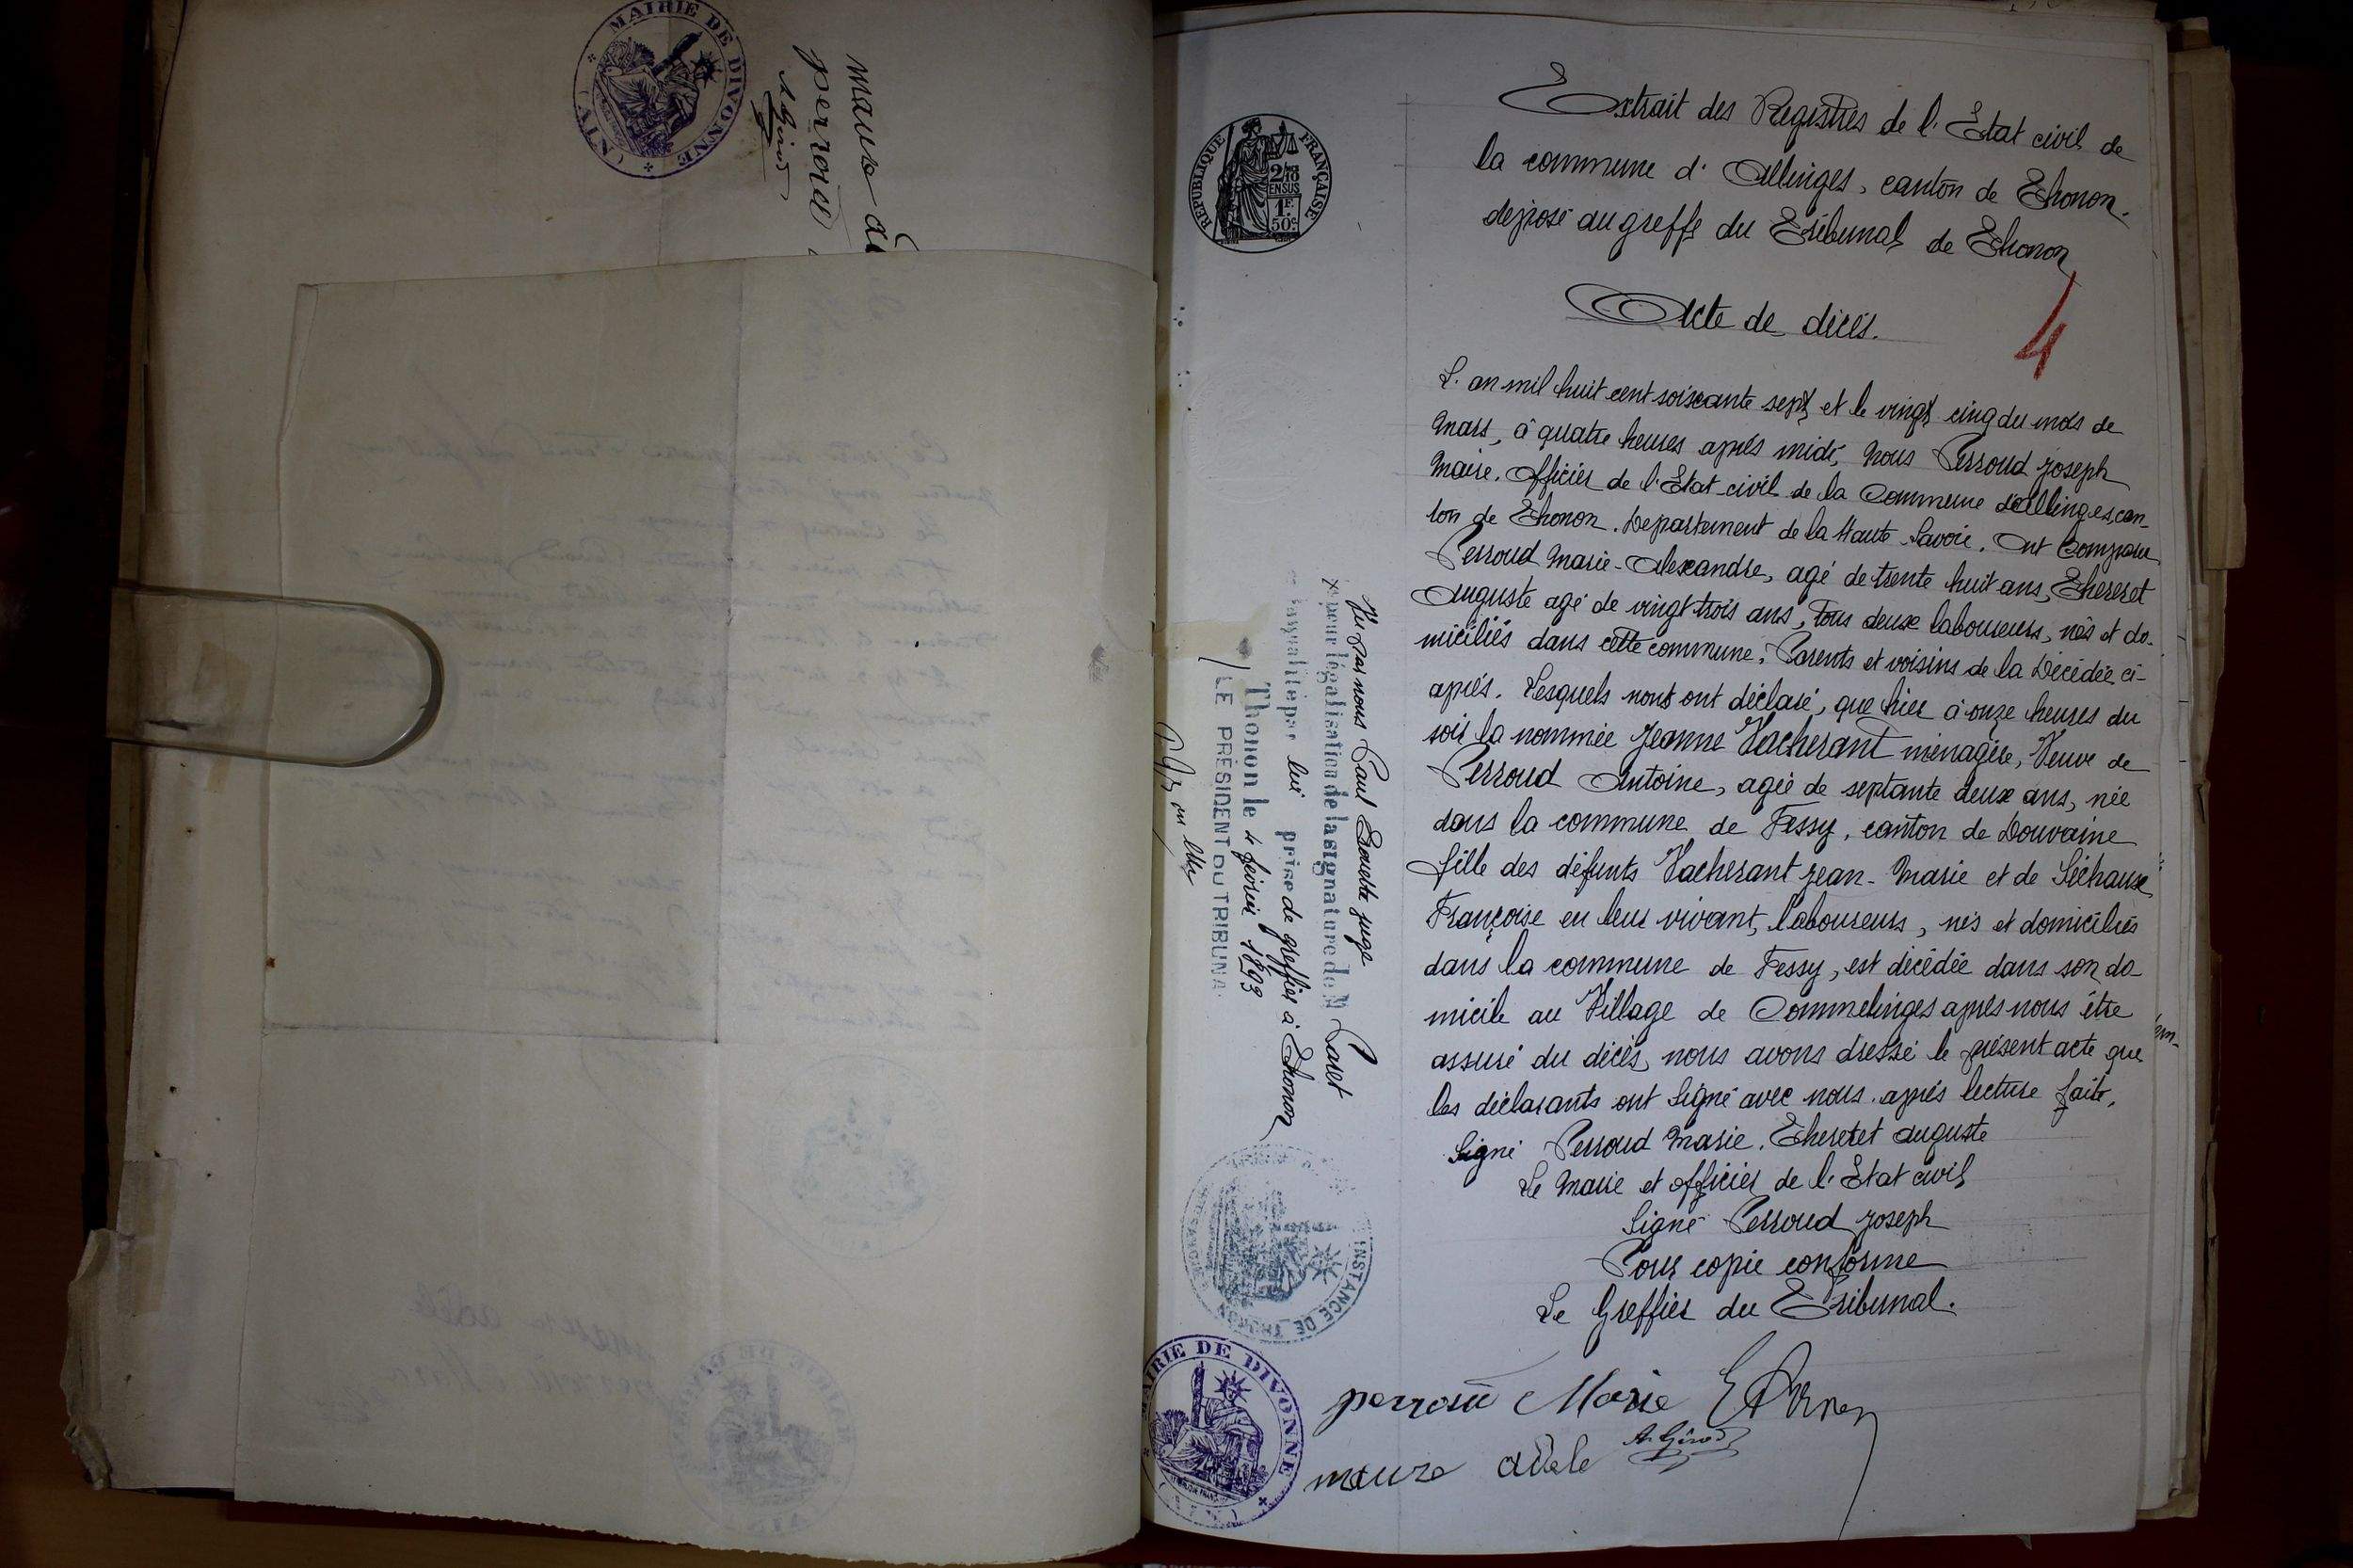 MAIRIE DE DIVONNE
(AIN)
maure
perroud
A Girod
Extrait des Registres de l'Etat civil de
la commune d'Allinges, canton de Thonon.
déposé au greffe du Tribunal de Thonon
RÉPUBLIQUE FRANÇAISE
2/10
EN SUS
1F.
50c
Acte de décès.
4
L'an mil huit cent soixante sept et le vingt cinq du mois de
Mars, à quatre heures après midi, Nous Perroud Joseph
Maire, Officier de l'Etat civil de la Commune d'Allinges, can-
ton de Thonon. Département de la Haute Savoie. Ont Comparu
Perroud Marie-Alexandre, agé de trente huit ans, Thereret
Auguste agé de vingt trois ans, tous deux laboureurs, nés et do-
miciliés dans cette commune, Parents et voisins de la Décédée ci-
après. Lesquels nous ont déclaré, que hier à onze heures du
soir la nommée Jeanne Vacherant ménagère, Veuve de
Perroud Antoine, agée de septante deux ans, née
dans la commune de Fessy, canton de Douvaine
fille des défunts Vacherant Jean-Marie et de Séchaux
Françoise en leur vivant, laboureurs, nés et domiciliés
dans la commune de Fessy, est décédée dans son do-
micile au Village de Commelinges après nous être
assuré du décès, nous avons dressé le présent acte que
les déclarants ont signé avec nous après lecture faite,
Signé Perroud Marie. Theretet Auguste
Le Maire et officier de l'Etat civil
Signé Perroud Joseph
Pour copie conforme
Le Greffier du Tribunal.
perroud Marie
A. Girod
maure adele
Vu par nous Paul juge
pour légalisation de la signature de M
et la qualité par lui prise de greffier à Thonon
Thonon le 4 février 1893
LE PRÉSIDENT DU TRIBUNAL
INSTANCE DE THONON
MAIRIE DE DIVONNE
(AIN)